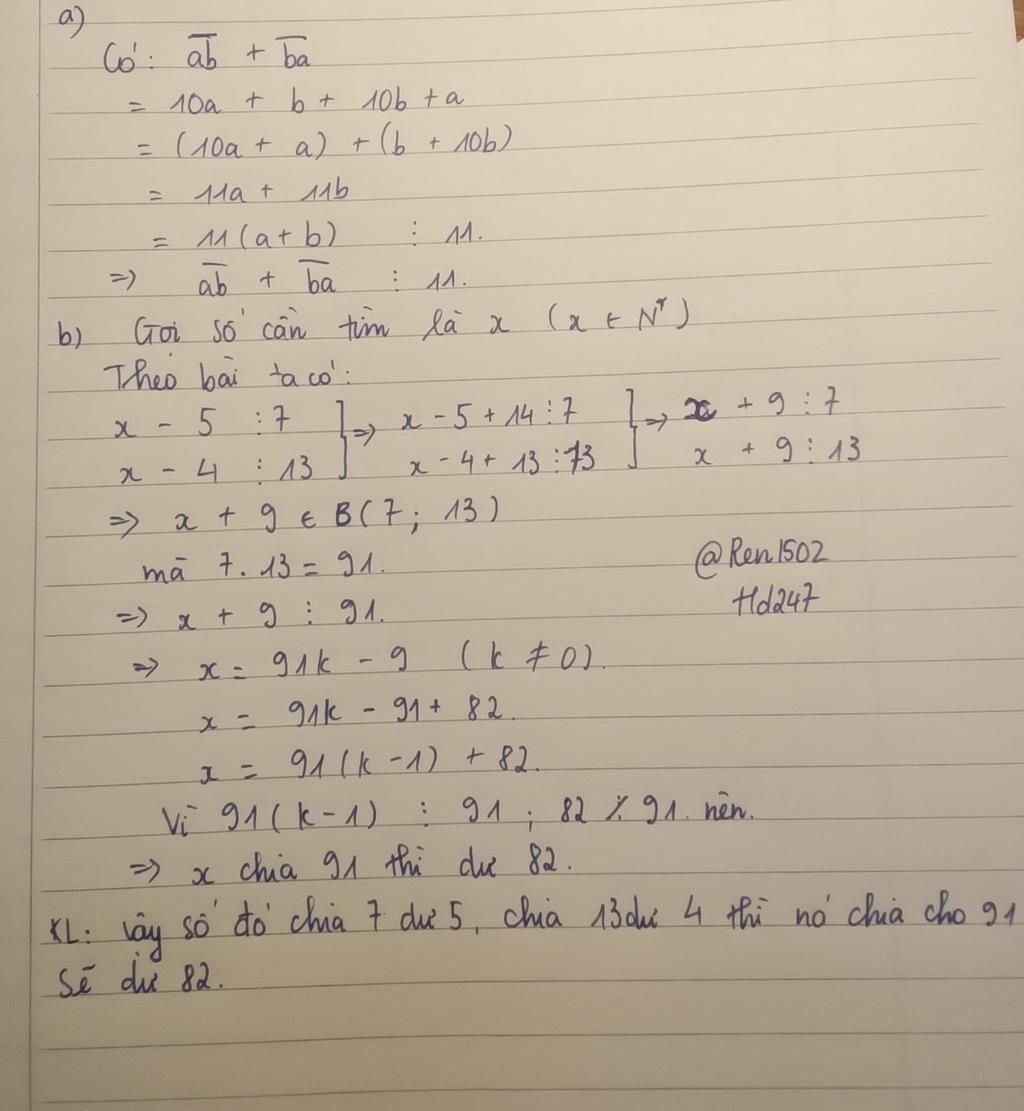 a)
Có: a̅b̅ + b̅a̅
= 10a + b + 10b + a
= (10a + a) + (b + 10b)
= 11a + 11b
= 11(a+b) ⋮ 11.
=> a̅b̅ + b̅a̅ ⋮ 11.
b) Gọi số cần tìm là x (x ∈ N*)
Theo bài ta có:
x - 5 ⋮ 7 ] => x - 5 + 14 ⋮ 7 ] => x + 9 ⋮ 7
x - 4 ⋮ 13 ] x - 4 + 13 ⋮ 13 ] x + 9 ⋮ 13
=> x + 9 ∈ B(7; 13)
mà 7. 13 = 91.
@Ren1502
=> x + 9 ⋮ 91.
Hd247
=> x = 91k - 9 (k ≠ 0).
x = 91k - 91 + 82.
x = 91(k - 1) + 82.
Vì 91(k - 1) ⋮ 91 ; 82 ⋮̸ 91. nên.
=> x chia 91 thì dư 82.
KL: Vậy số đó chia 7 dư 5, chia 13 dư 4 thì nó chia cho 91
sẽ dư 82.